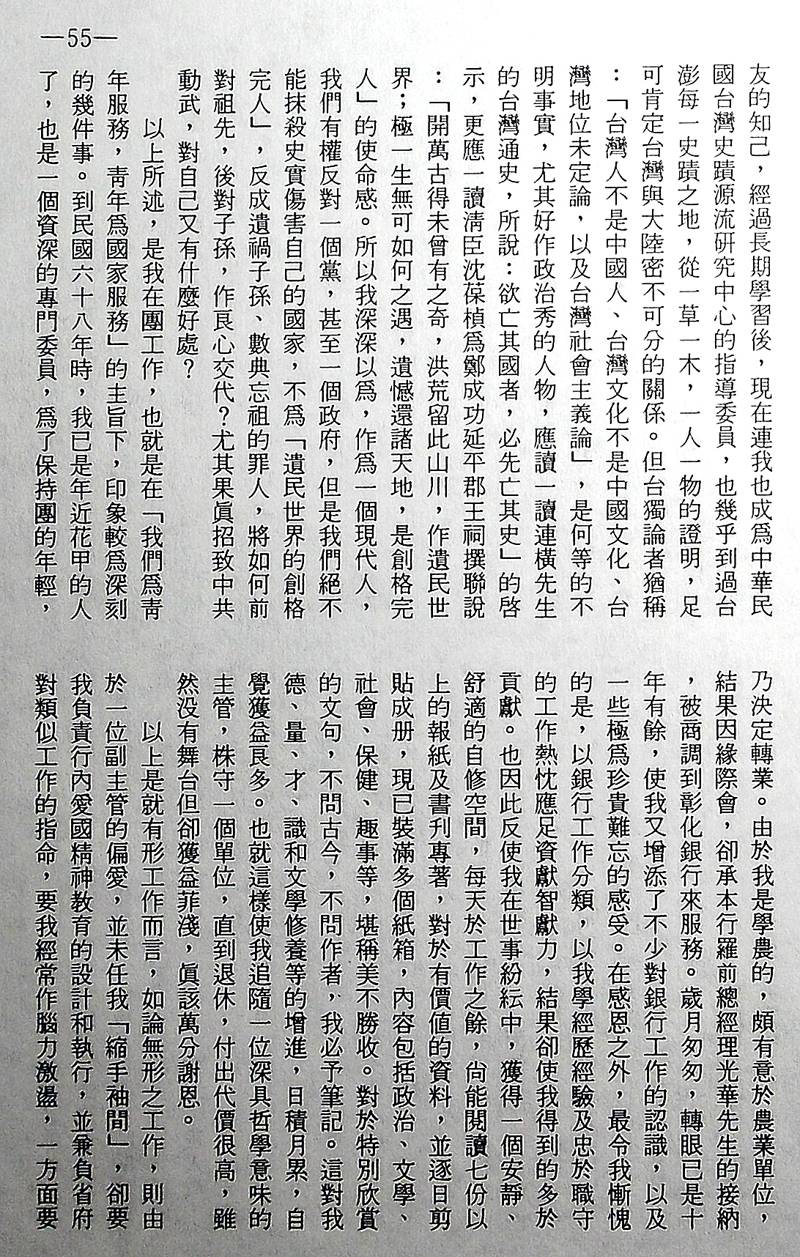 —55—
友的知己，經過長期學習後，現在連我也成爲中華民
國台灣史蹟源流研究中心的指導委員，也幾乎到過台
澎每一史蹟之地，從一草一木，一人一物的證明，足
可肯定台灣與大陸密不可分的關係。但台獨論者猶稱
：「台灣人不是中國人、台灣文化不是中國文化、台
灣地位未定論，以及台灣社會主義論」，是何等的不
明事實，尤其好作政治秀的人物，應讀一讀連橫先生
的台灣通史，所說：欲亡其國者，必先亡其史」的啓
示，更應一讀清臣沈葆楨爲鄭成功延平郡王祠撰聯說
：「開萬古得未曾有之奇，洪荒留此山川，作遺民世
界；極一生無可如何之遇，遺憾還諸天地，是創格完
人」的使命感。所以我深深以爲，作爲一個現代人，
我們有權反對一個黨，甚至一個政府，但是我們絕不
能抹殺史實傷害自己的國家，不爲「遺民世界的創格
完人」，反成遺禍子孫、數典忘祖的罪人，將如何前
對祖先，後對子孫，作良心交代？尤其果眞招致中共
動武，對自己又有什麼好處？
以上所述，是我在團工作，也就是在「我們爲青
年服務，青年爲國家服務」的主旨下，印象較爲深刻
的幾件事。到民國六十八年時，我已是年近花甲的人
了，也是一個資深的專門委員，爲了保持團的年輕，
乃決定轉業。由於我是學農的，頗有意於農業單位，
結果因緣際會，卻承本行羅前總經理光華先生的接納
，被商調到彰化銀行來服務。歲月匆匆，轉眼已是十
年有餘，使我又增添了不少對銀行工作的認識，以及
一些極爲珍貴難忘的感受。在感恩之外，最令我慚愧
的是，以銀行工作分類，以我學經歷經驗及忠於職守
的工作熱忱應足資獻智獻力，結果卻使我得到的多於
貢獻。也因此反使我在世事紛紜中，獲得一個安靜、
舒適的自修空間，每天於工作之餘，尙能閱讀七份以
上的報紙及書刊專著，對於有價値的資料，並逐日剪
貼成册，現已裝滿多個紙箱，內容包括政治、文學、
社會、保健、趣事等，堪稱美不勝收。對於特別欣賞
的文句，不問古今，不問作者，我必予筆記。這對我
德、量、才、識和文學修養等的增進，日積月累，自
覺獲益良多。也就這樣使我追隨一位深具哲學意味的
主管，株守一個單位，直到退休，付出代價很高，雖
然没有舞台但卻獲益菲淺，眞該萬分謝恩。
以上是就有形工作而言，如論無形之工作，則由
於一位副主管的偏愛，並未任我「縮手袖間」，卻要
我負責行內愛國精神教育的設計和執行，並兼負省府
對類似工作的指命，要我經常作腦力激盪，一方面要